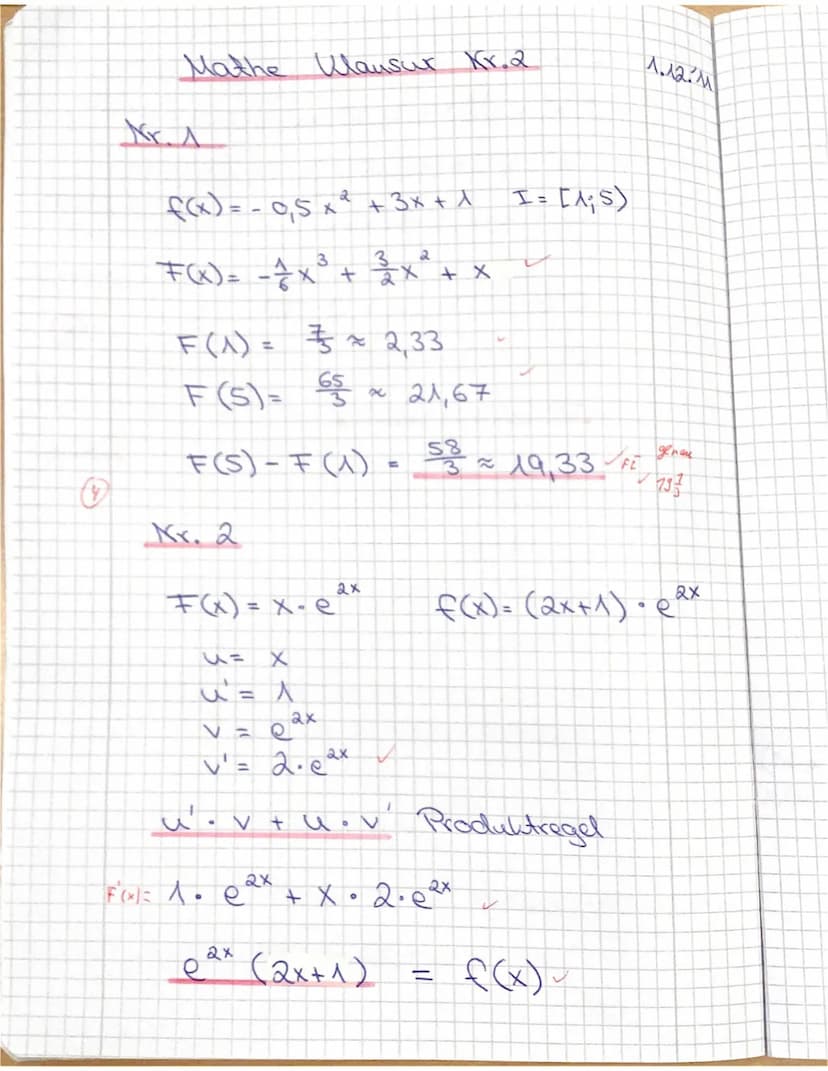 Mathe Klausur Nr. 2 1.12.'11
Nr. 1
f(x) = - 0,5 x² + 3x + 1 I = [1; 5)
F(x) = - 1/6 x³ + 3/2 x² + x ✓
F(1) = 7/3 ≈ 2,33
F(5) = 65/3 ≈ 21,67 ✓
F(5) - F(1) = 58/3 ≈ 19,33 ✓ FE ✓ genau 19 1/3
4
Nr. 2
F(x) = x · e^2x f(x) = (2x+1) · e^2x
u = x
u' = 1
v = e^2x
v' = 2 · e^2x ✓
u' · v + u · v' Produktregel
F'(x) = 1 · e^2x + x · 2 · e^2x ✓
e^2x (2x+1) = f(x) ✓